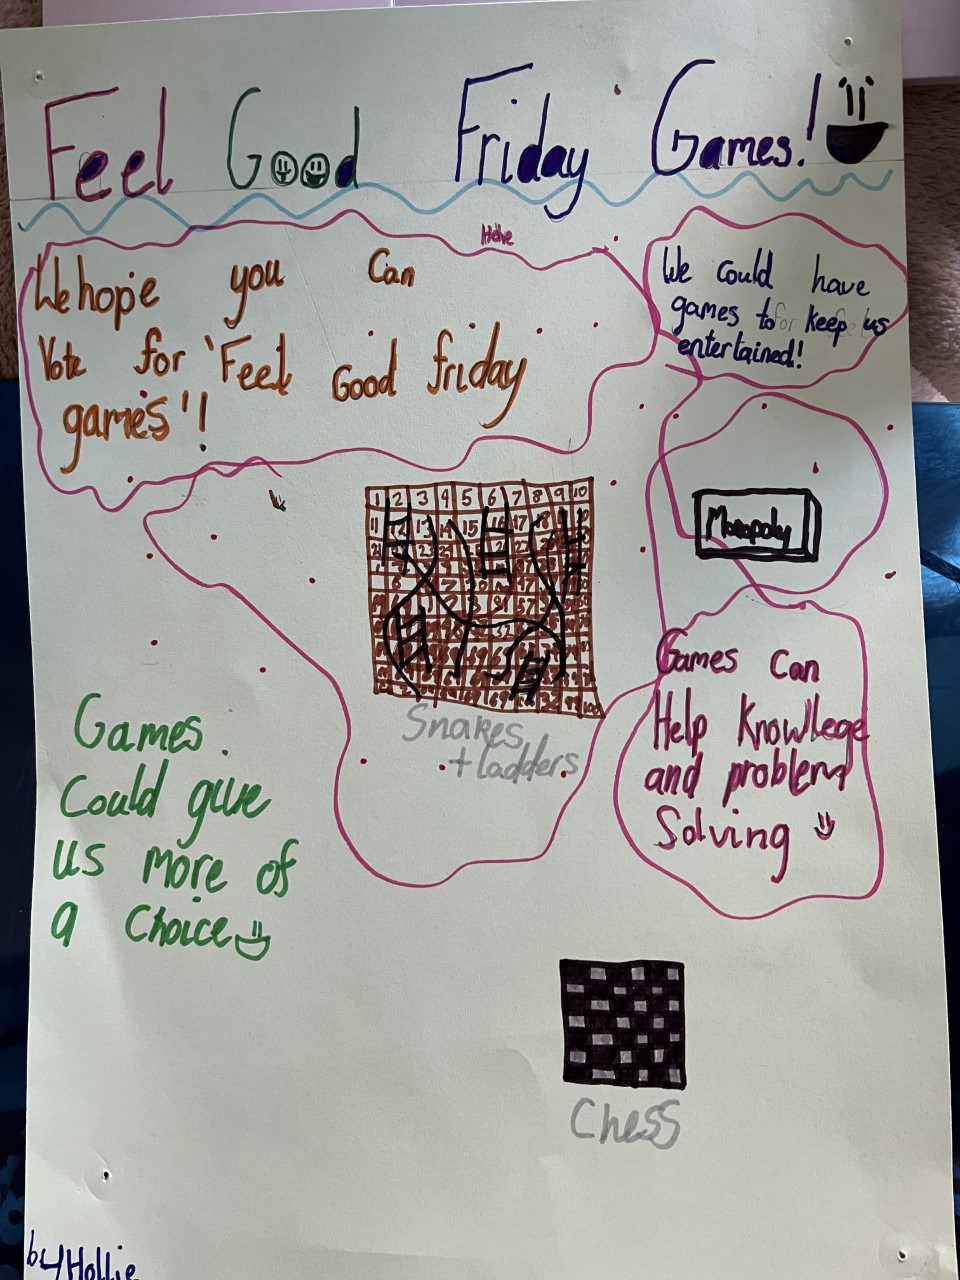 Feel Good Friday Games!
We hope you Can
Vote for 'Feel Good friday
games'!
We could have
games to keep us
entertained!
Monopoly
1 2 3 4 5 6 7 8 9 10
Snakes
+ ladders
Games Can
Help Knowlege
and problem
Solving
Games.
Could give
us more of
a Choice
Chess
by Hollie